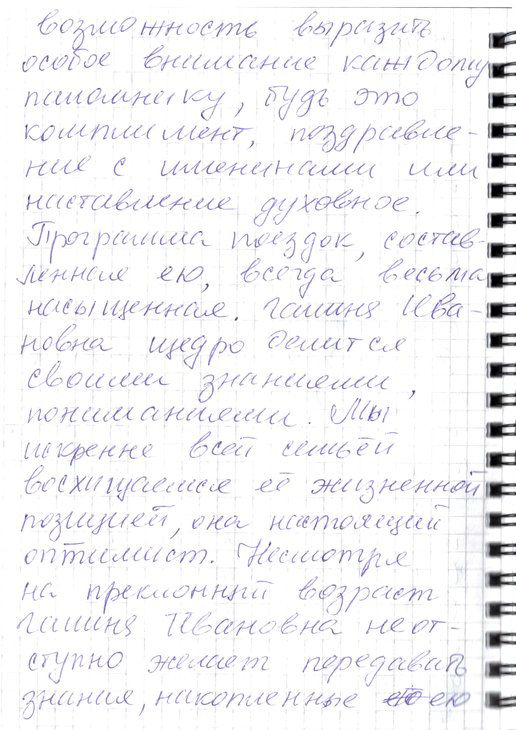 возможность выразить
особое внимание каждому
паломнику, будь это
комплимент, поздравле-
ние с именинами или
наставление духовное.
Программа поездок, состав-
ленная ею, всегда весьма
насыщенная. Галина Ива-
новна щедро делится
своими знаниями,
пониманиями. Мы
искренне всей семьёй
восхищаемся её жизненной
позицией, она настоящий
оптимист. Несмотря
на преклонный возраст
Галина Ивановна неот-
ступно желает передавать
знания, накопленные ею